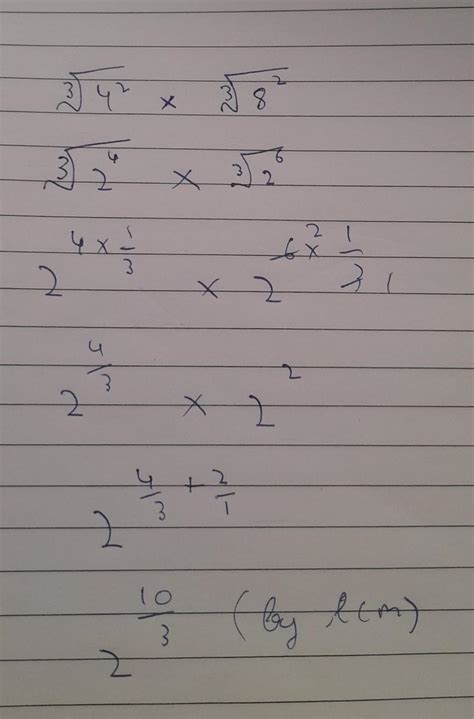 ∛4² × ∛8²
∛2⁴ × ∛2⁶
2^(4 × 1/3) × 2^(6̶ ² × 1/3̶ 1)
2^(4/3) × 2²
2^(4/3 + 2/1)
2^(10/3) (by lcm)